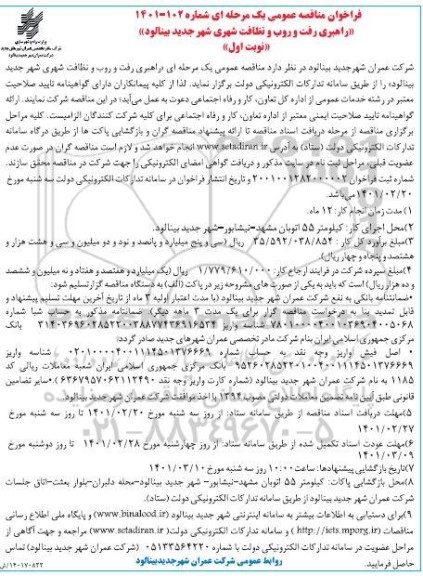 فراخوان مناقصه عمومی یک مرحله ای شماره ۱۰۲-۱۴۰۱
«راهبری رفت و روب و نظافت شهری شهر جدید بینالود»
«نوبت اول»
شرکت عمران شهرجدید بینالود در نظر دارد مناقصه عمومی یک مرحله ای «راهبری رفت و روب و نظافت شهری شهر جدید
بینالود» را از طریق سامانه تدارکات الکترونیکی دولت برگزار نماید. لذا از کلیه پیمانکاران دارای گواهینامه تایید صلاحیت
معتبر در رشته خدمات عمومی از اداره کل تعاون، کار و رفاه اجتماعی دعوت به عمل می‌آید؛ در این مناقصه شرکت نمایند. ارائه
گواهینامه تایید صلاحیت ایمنی معتبر از اداره تعاون، کار و رفاه اجتماعی برای کلیه شرکت کنندگان الزامیست. کلیه مراحل
برگزاری مناقصه از مرحله دریافت اسناد مناقصه تا ارائه پیشنهاد مناقصه گران و بازگشایی پاکت ها از طریق درگاه سامانه
تدارکات الکترونیکی دولت (ستاد) به آدرس www.setadiran.ir انجام خواهد شد و لازم است مناقصه گران در صورت عدم
عضویت قبلی، مراحل ثبت نام در سایت مذکور و دریافت گواهی امضای الکترونیکی را جهت شرکت در مناقصه محقق سازند.
شماره ثبت فراخوان ۲۰۰۱۰۰۱۲۸۲۰۰۰۰۰۲ و تاریخ انتشار فراخوان در سامانه تدارکات الکترونیکی دولت سه شنبه مورخ
۱۴۰۱/۰۲/۲۰ می‌باشد.
۱) مدت زمان انجام کار: ۱۲ ماه.
۲) محل اجرای کار: کیلومتر ۵۵ اتوبان مشهد-نیشابور-شهر جدید بینالود.
۳) مبلغ برآورد کل کار: ۳۵/۵۹۲/۰۳۸/۸۵۴ ریال (سی و پنج میلیارد و پانصد و نود و دو میلیون و سی و هشت هزار و
هشتصد و پنجاه و چهار ریال).
۴) مبلغ سپرده شرکت در فرایند ارجاع کار: ۱/۷۷۹/۶۱۰/۰۰۰ ریال (یک میلیارد و هفتصد و هفتاد و نه میلیون و ششصد
و ده هزار ریال) است که باید به یکی از صورت های مشروحه زیر در پاکت (الف) به دستگاه مناقصه گزار تسلیم شود:
•ضمانتنامه بانکی به نفع شرکت عمران شهر جدید بینالود (با مدت اعتبار اولیه ۳ ماه از تاریخ آخرین مهلت تسلیم پیشنهاد و
قابل تمدید بنا به درخواست مناقصه گزار برای یک مدت ۳ ماهه دیگر)
مرکزی جمهوری اسلامی ایران بنام شرکت مادر تخصصی عمران شهرهای جدید صادر گردد؛
• اصل فیش واریز وجه نقد به حساب شماره
بانک مرکزی جمهوری اسلامی ایران شعبه معاملات ریالی کد
۱۱۸۵ به نام شرکت عمران شهر جدید بینالود
قانونی طبق آیین نامه تضمین معاملات دولتی مصوب ۱۳۹۴ با اخذ موافقت شرکت عمران شهر جدید بینالود.
۵) مهلت دریافت اسناد مناقصه از طریق سامانه ستاد: از روز سه شنبه مورخ ۱۴۰۱/۰۲/۲۰ تا روز سه شنبه مورخ
۱۴۰۱/۰۲/۲۷
۶) مهلت عودت اسناد تکمیل شده از طریق سامانه ستاد: از روز چهارشنبه مورخ ۱۴۰۱/۰۲/۲۸ تا روز دوشنبه مورخ
۱۴۰۱/۰۳/۰۹
۷) تاریخ بازگشایی پیشنهادها: ساعت ۱۰:۰۰ روز سه شنبه مورخ ۱۴۰۱/۰۳/۱۰
۸) محل بازگشایی پاکات: کیلومتر ۵۵ اتوبان مشهد-نیشابور- شهر جدید بینالود-محله دلبران-بلوار بعثت-اتاق جلسات
شرکت عمران شهر جدید بینالود از طریق سامانه تدارکات الکترونیکی دولت (ستاد).
۹) برای دستیابی به اطلاعات بیشتر به سامانه اینترنتی شهر جدید بینالود (www.binalood.ir) و پایگاه ملی اطلاع رسانی
مناقصات (http://iets.mporg.ir) و سامانه تدارکات الکترونیکی دولت (www.setadiran.ir) مراجعه و جهت آگاهی از
مراحل عضویت در سامانه تدارکات الکترونیکی دولت با شماره ۰۵۱۳۳۵۶۴۲۲۰ (شرکت عمران شهر جدید بینالود) تماس
حاصل فرمایید.
روابط عمومی شرکت عمران شهرجدیدبینالود
۰۲۱-۸۸۳۴۹۶۷۰-۵